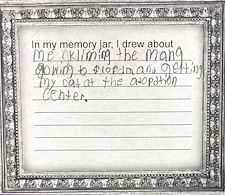 In my memory jar, I drew about
me climing the mang
and getting
my cat at the adoption
center.